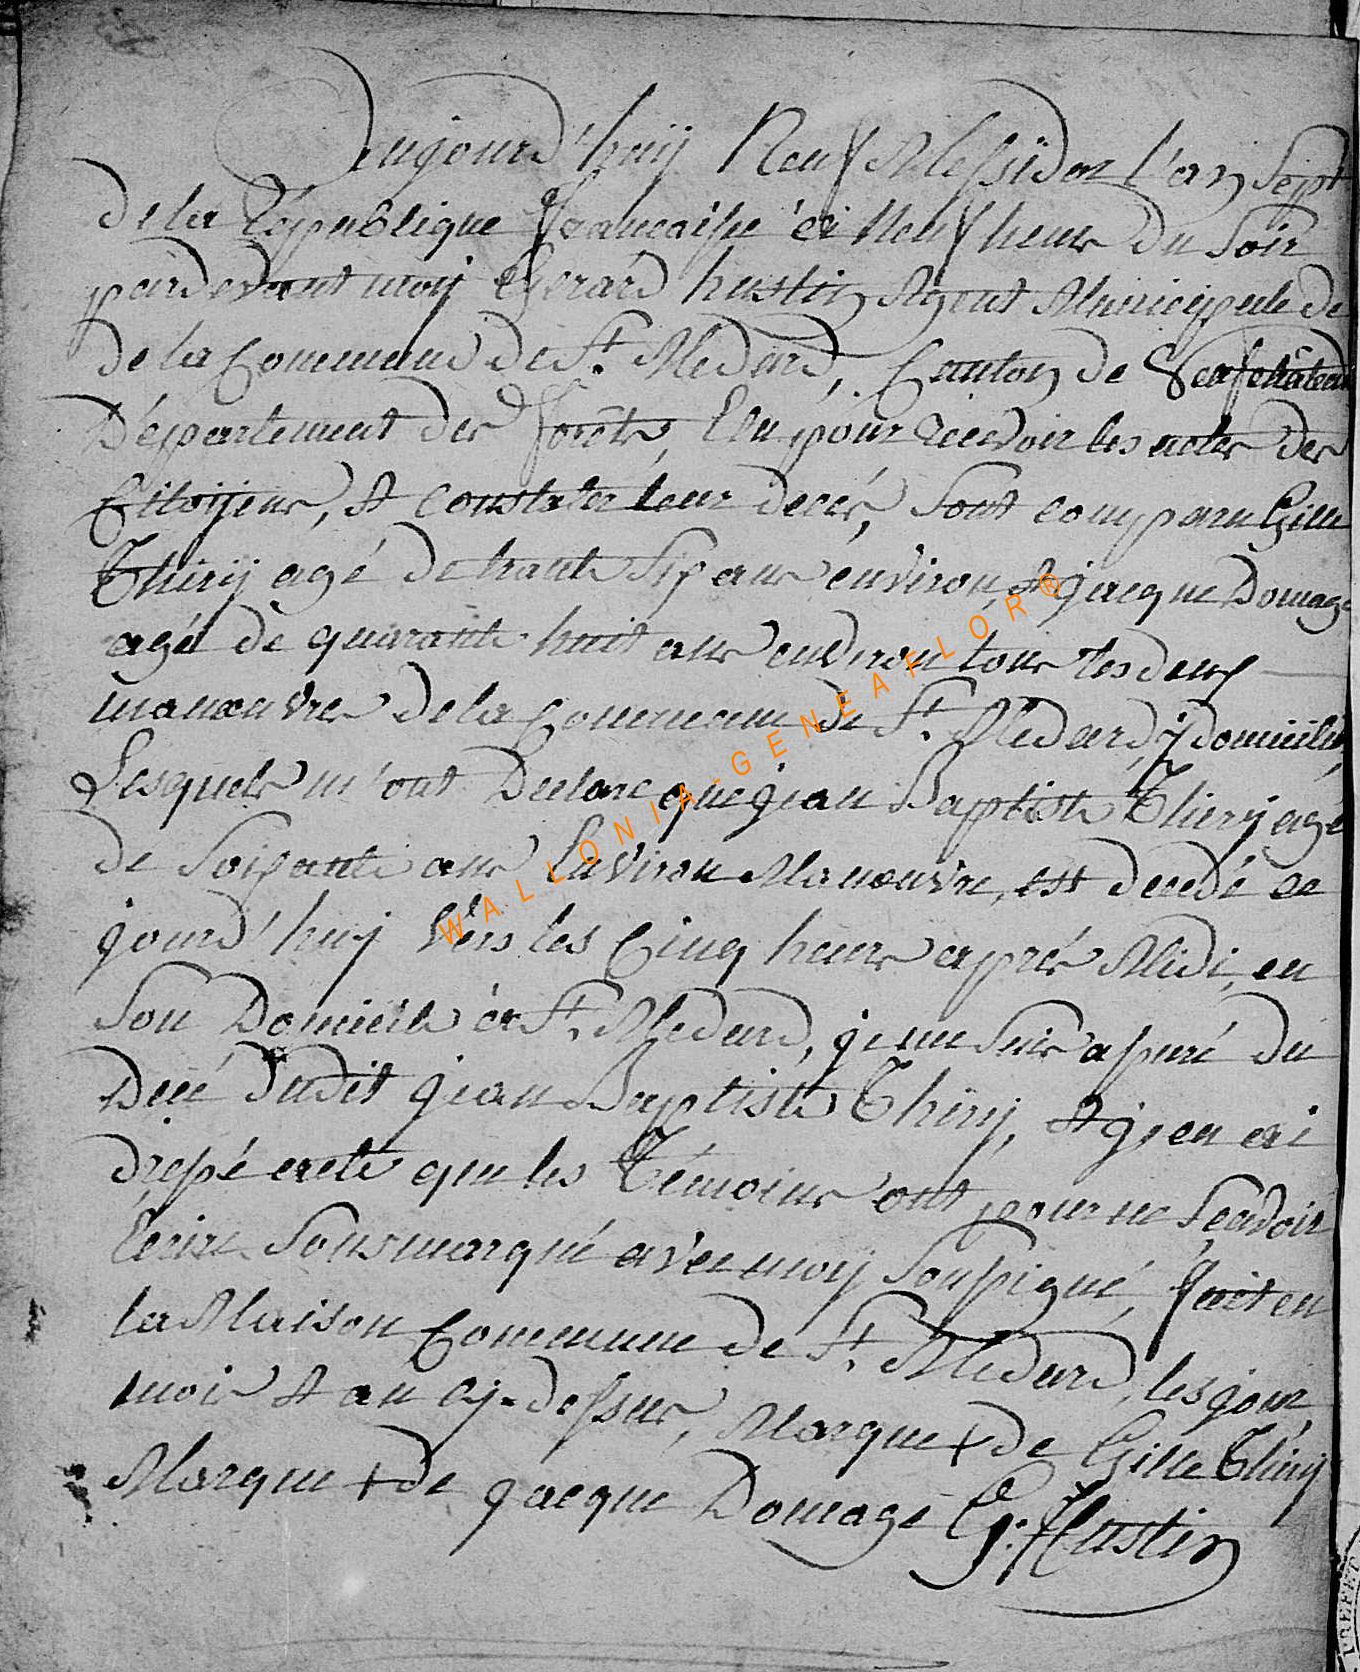 aujourd'huÿ Neuf Messidor l'an Sept
de la République française à Neuf heur du Soir
pardevant moÿ Gerard hustin Agent Municipale de
de la Commune de St. Medard, Canton de Neufchâteau
Département der forêts, Elu pour recevoir les actes des
Citoÿens, & constater leur decés, Sont comparu Gille
Thirÿ agé de trante Six ans environ, & jacque Domage
agé de quarante huit ans environ tous les deux
manœuvres de la Commune de St. Medard, ÿ domicilié,
Lesquels m'ont Declaré que jean Baptiste Thirÿ agé
de Soixante ans Environ Manœuvre, est decedé ce
jourd'huÿ Vers les Cinq heurs aprés Midi, en
Son Domicile à St. Medard, je me Suis assuré du
Decé dudit jean Baptiste Thirÿ, & j'en ai
dressé acte que les Témoins ont pour ne Scavoir
Ecrire Sousmarqué avec moÿ Soussigné, fait en
la Maison Commune de St. Medard, les jour,
mois & an cÿ-dessus, Marque + de Gille Thirÿ
Marque + de jacque Domage G: Hustin
WALLONIA-GENEAFLOR®